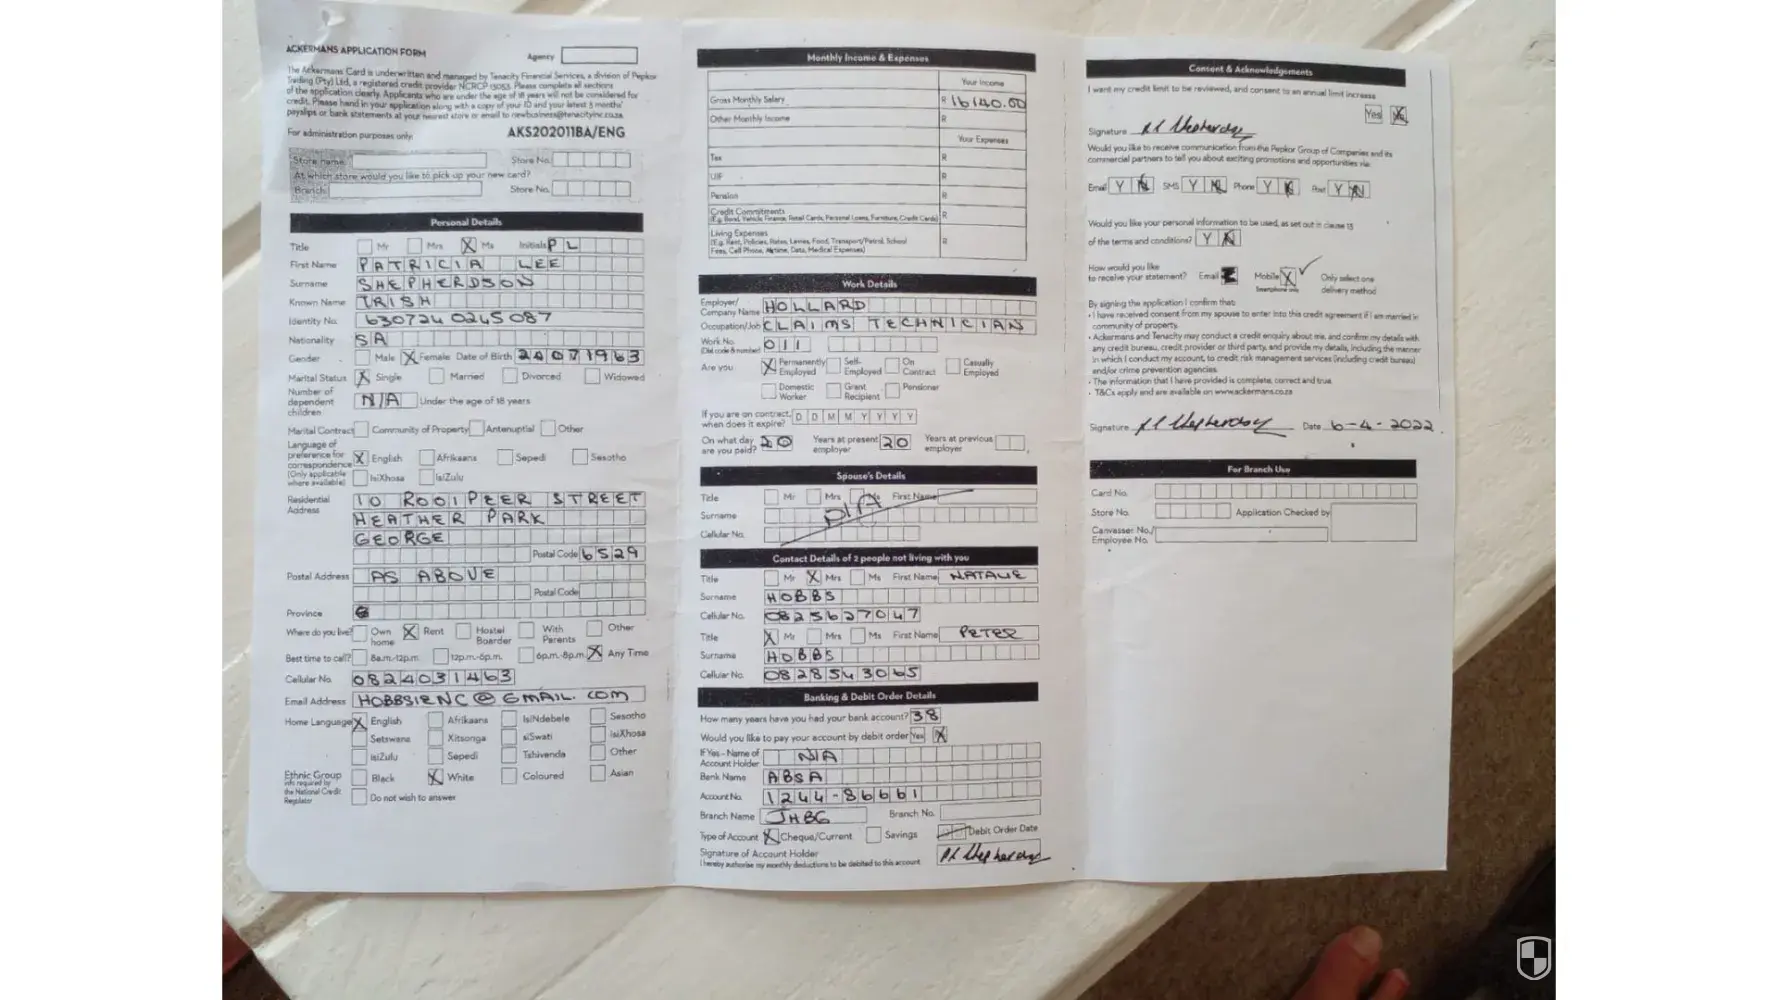 ACKERMANS APPLICATION FORM
Agency
The Ackermans Card is underwritten and managed by Tenacity Financial Services, a division of Pepkor
Trading (Pty) Ltd, a registered credit provider NCRCP 13053. Please complete all sections
of the application clearly. Applicants who are under the age of 18 years will not be considered for
credit. Please hand in your application along with a copy of your ID and your latest 3 months'
payslips or bank statements at your nearest store or email to newbusiness@tenacityinc.co.za.
For administration purposes only:
AKS202011BA/ENG
Store name
Store No.
At which store would you like to pick up your new card?
Branch
Store No.
Personal Details
Title Mr Mrs X Ms Initials P L
First Name PATRICIA LEE
Surname SHEPHERDSON
Known Name TRISH
Identity No. 630724 0245 087
Nationality SA
Gender Male X Female Date of Birth 24071963
Marital Status X Single Married Divorced Widowed
Number of dependent children N/A Under the age of 18 years
Marital Contract Community of Property Antenuptial Other
Language of preference for correspondence (Only applicable where available) X English Afrikaans Sepedi Sesotho
IsiXhosa IsiZulu
Residential Address 10 ROOIPEER STREET
HEATHER PARK
GEORGE
Postal Code 6529
Postal Address AS ABOVE
Postal Code
Province
Where do you live? Own home X Rent Hostel Boarder With Parents Other
Best time to call? 8a.m.-12p.m. 12p.m-6p.m. 6p.m.-8p.m. X Any Time
Cellular No. 0824031463
Email Address HOBBSIENC@GMAIL.COM
Home Language X English Afrikaans IsiNdebele Sesotho
Setswana Xitsonga siSwati isiXhosa
isiZulu Sepedi Tshivenda Other
Ethnic Group info required by the National Credit Regulator Black X White Coloured Asian
Do not wish to answer
Monthly Income & Expenses
Your Income
Gross Monthly Salary R 16140.00
Other Monthly Income R
Your Expenses
Tax R
UIF R
Pension R
Credit Commitments R
(E.g. Bond, Vehicle Finance, Retail Cards, Personal Loans, Furniture, Credit Cards)
Living Expenses
(E.g. Rent, Policies, Rates, Levies, Food, Transport/Petrol, School
Fees, Cell Phone, Airtime, Data, Medical Expenses) R
Work Details
Employer/ Company Name HOLLARD
Occupation/Job CLAIMS TECHNICIAN
Work No. (Dial code & number) 011
Are you X Permanently Employed Self-Employed On Contract Casually Employed
Domestic Worker Grant Recipient Pensioner
If you are on contract, when does it expire? D D M M Y Y Y Y
On what day are you paid? 20 Years at present employer 20 Years at previous employer
Spouse's Details
Title Mr Mrs Ms First Name
N/A
Surname
Cellular No.
Contact Details of 2 people not living with you
Title Mr X Mrs Ms First Name NATALIE
Surname HOBBS
Cellular No. 0825627047
Title X Mr Mrs Ms First Name PETER
Surname HOBBS
Cellular No. 0828543065
Banking & Debit Order Details
How many years have you had your bank account? 38
Would you like to pay your account by debit order Yes X
If Yes - Name of Account Holder N/A
Bank Name ABSA
Account No. 1244-86661
Branch Name JHBG Branch No.
Type of Account X Cheque/Current Savings Debit Order Date
Signature of Account Holder PL Shepherdson
I hereby authorise my monthly deductions to be debited to this account
Consent & Acknowledgements
I want my credit limit to be reviewed, and consent to an annual limit increase
Yes
Signature PL Shepherdson
Would you like to receive communication from the Pepkor Group of Companies and its
commercial partners to tell you about exciting promotions and opportunities via:
Email Y N SMS Y N Phone Y N Post Y N
Would you like your personal information to be used, as set out in clause 13
of the terms and conditions? Y N
How would you like
to receive your statement? Email Mobile X Smartphone only Only select one delivery method
By signing the application I confirm that:
• I have received consent from my spouse to enter into this credit agreement if I am married in
community of property.
• Ackermans and Tenacity may conduct a credit enquiry about me, and confirm my details with
any credit bureau, credit provider or third party, and provide my details, including the manner
in which I conduct my account, to credit risk management services (including credit bureau)
and/or crime prevention agencies.
• The information that I have provided is complete, correct and true.
• T&Cs apply and are available on www.ackermans.co.za
Signature PL Shepherdson Date 6-4-2022
For Branch Use
Card No.
Store No. Application Checked by
Canvasser No./ Employee No.